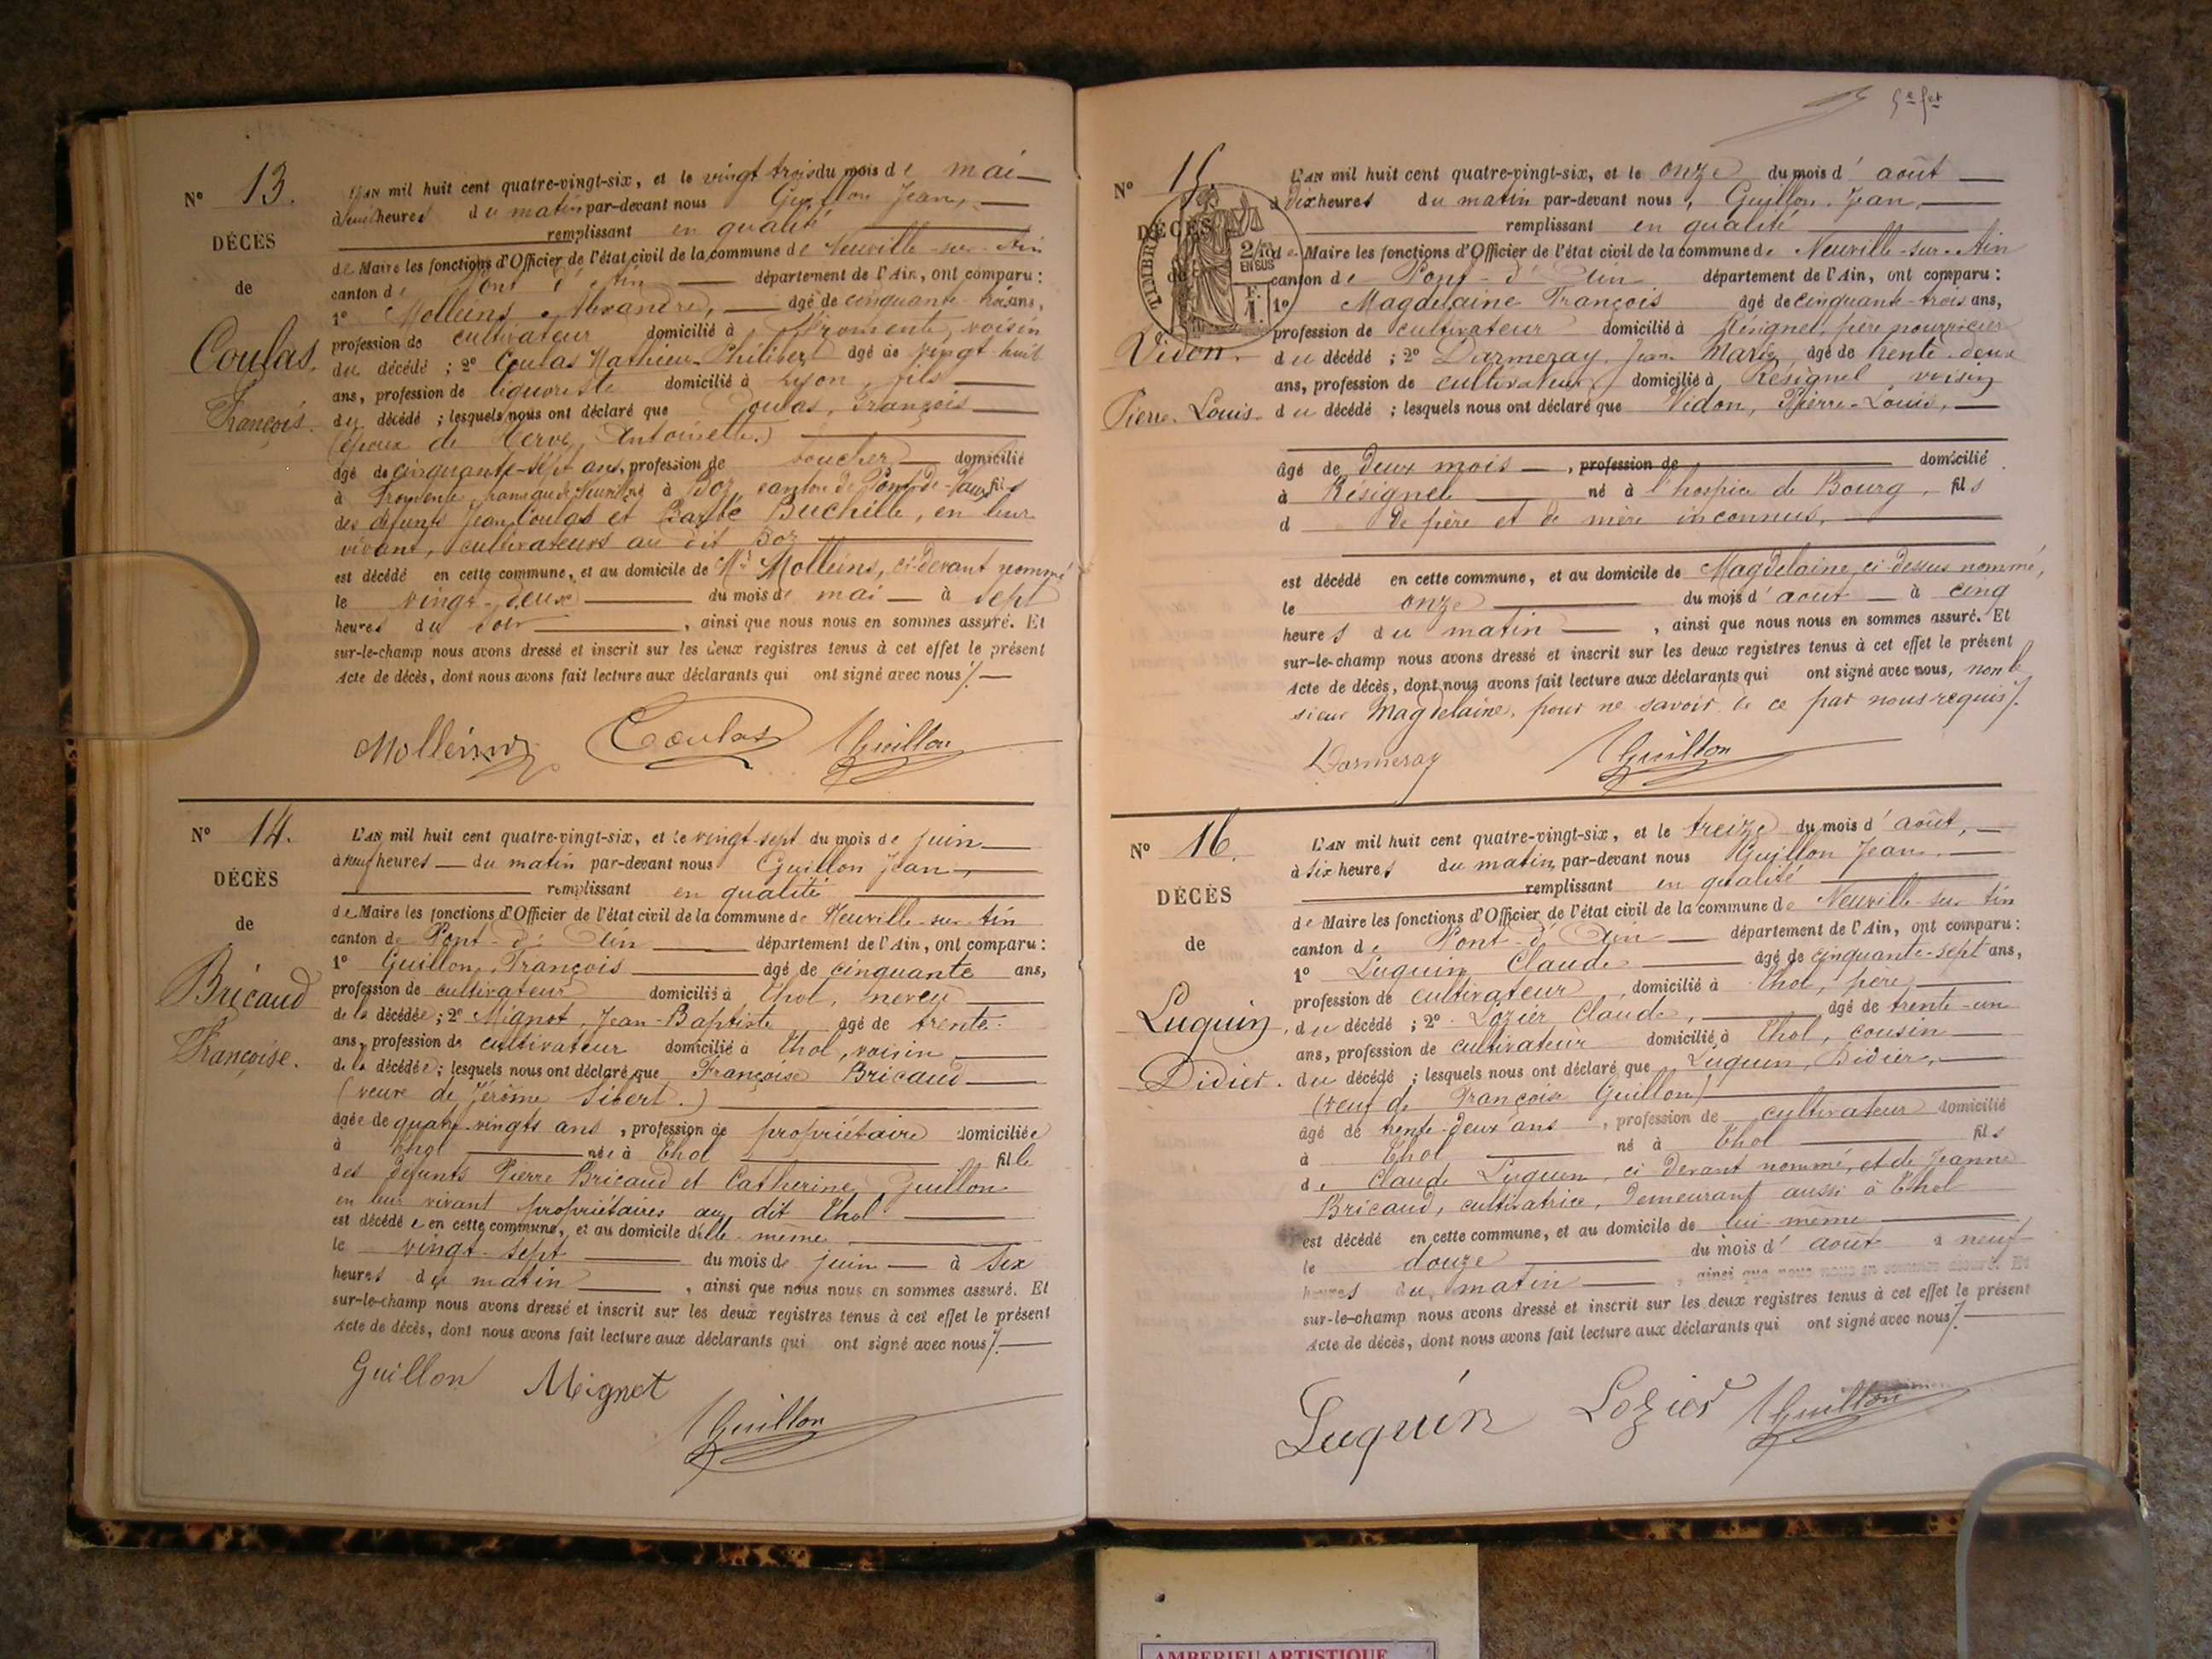 Nº 13.
DÉCÈS
de
Coulas,
François.
L'AN mil huit cent quatre-vingt-six, et le vingt trois du mois de mai
heures du matin par-devant nous Guillon Jean,
remplissant en qualité
de Maire les fonctions d'Officier de l'état civil de la commune de Neuville-sur-Ain
canton de Pont d'Ain département de l'Ain, ont comparu :
1º Molleins Alexandre, âgé de cinquante trois ans,
profession de cultivateur domicilié à Fromente, voisin
du décédé ; 2º Coulas Mathieu-Philibert âgé de vingt-huit
ans, profession de liquoriste domicilié à Lyon, fils
du décédé ; lesquels nous ont déclaré que Coulas, François
(époux de Herve, Antoinette.)
âgé de cinquante-sept ans, profession de boucher domicilié
à Fromente, né à Boz, canton de Pont-de-Vaux fils
des défunts Jean Coulas et Barbe Buchille, en leur
vivant, cultivateurs au dit Boz
est décédé en cette commune, et au domicile de Mr Molleins, ci-devant nommé
le vingt-deux du mois de mai à sept
heures du soir, ainsi que nous nous en sommes assuré. Et
sur-le-champ nous avons dressé et inscrit sur les deux registres tenus à cet effet le présent
acte de décès, dont nous avons fait lecture aux déclarants qui ont signé avec nous /.
Molleins Coulas JGuillon
Nº 14.
DÉCÈS
de
Bricaud
Françoise.
L'AN mil huit cent quatre-vingt-six, et le vingt-sept du mois de juin
à neuf heures du matin par-devant nous Guillon Jean,
remplissant en qualité
de Maire les fonctions d'Officier de l'état civil de la commune de Neuville-sur-Ain
canton de Pont-d'Ain département de l'Ain, ont comparu :
1º Guillon, François âgé de cinquante ans,
profession de cultivateur domicilié à Thol, neveu
de la décédée ; 2º Mignot, Jean-Baptiste âgé de trente
ans, profession de cultivateur domicilié à Thol, voisin
de la décédée ; lesquels nous ont déclaré que Françoise Bricaud
(veuve de Jérôme Sibert.)
âgée de quatre-vingts ans, profession de propriétaire domiciliée
à Thol née à Thol fille
des défunts Pierre Bricaud et Catherine Guillon
en leur vivant propriétaires au dit Thol
est décédée en cette commune, et au domicile d'elle-même
le vingt-sept du mois de juin à six
heures du matin, ainsi que nous nous en sommes assuré. Et
sur-le-champ nous avons dressé et inscrit sur les deux registres tenus à cet effet le présent
acte de décès, dont nous avons fait lecture aux déclarants qui ont signé avec nous /.
Guillon Mignot
JGuillon
5e fet
Nº 15.
DÉCÈS
de
Vidon.
Pierre-Louis.
TIMBRE
2/10
EN SUS
L'AN mil huit cent quatre-vingt-six, et le onze du mois d'août
à dix heures du matin par-devant nous, Guillon, Jean,
remplissant en qualité
de Maire les fonctions d'Officier de l'état civil de la commune de Neuville-sur-Ain
canton de Pont-d'Ain département de l'Ain, ont comparu :
1º Magdelaine François âgé de cinquante-trois ans,
profession de cultivateur domicilié à Résignel, père nourricier
du décédé ; 2º Darmeray, Jean Marie, âgé de trente-deux
ans, profession de cultivateur domicilié à Résignel voisin
du décédé ; lesquels nous ont déclaré que Vidon, Pierre-Louis,
âgé de deux mois, profession de domicilié
à Résignel né à l'hospice de Bourg, fils
d de père et de mère inconnus,
est décédé en cette commune, et au domicile de Magdelaine, ci-dessus nommé,
le onze du mois d'août à cinq
heures du matin, ainsi que nous nous en sommes assuré. Et
sur-le-champ nous avons dressé et inscrit sur les deux registres tenus à cet effet le présent
acte de décès, dont nous avons fait lecture aux déclarants qui ont signé avec nous, non le
sieur Magdelaine, pour ne savoir de ce par nous requis /.
Darmeray JGuillon
Nº 16.
DÉCÈS
de
Luquin,
Didier.
L'AN mil huit cent quatre-vingt-six, et le treize du mois d'août,
à six heures du matin, par-devant nous Guillon Jean,
remplissant en qualité
de Maire les fonctions d'Officier de l'état civil de la commune de Neuville-sur-Ain
canton de Pont-d'Ain département de l'Ain, ont comparu :
1º Luquin, Claude âgé de cinquante-sept ans,
profession de cultivateur, domicilié à Thol, père
du décédé ; 2º Lozier Claude, âgé de trente-un
ans, profession de cultivateur domicilié à Thol, cousin
du décédé ; lesquels nous ont déclaré que Luquin, Didier,
(veuf de Françoise Guillon)
âgé de trente-deux ans, profession de cultivateur domicilié
à Thol né à Thol fils
de Claude Luquin, ci-devant nommé, et de Jeanne
Bricaud, cultivatrice, demeurant aussi à Thol
est décédé en cette commune, et au domicile de lui-même
le douze du mois d'août à neuf
heures du matin, ainsi que nous nous en sommes assuré. Et
sur-le-champ nous avons dressé et inscrit sur les deux registres tenus à cet effet le présent
acte de décès, dont nous avons fait lecture aux déclarants qui ont signé avec nous /.
Luquin Lozier JGuillon
AMBERIEU ARTISTIQUE